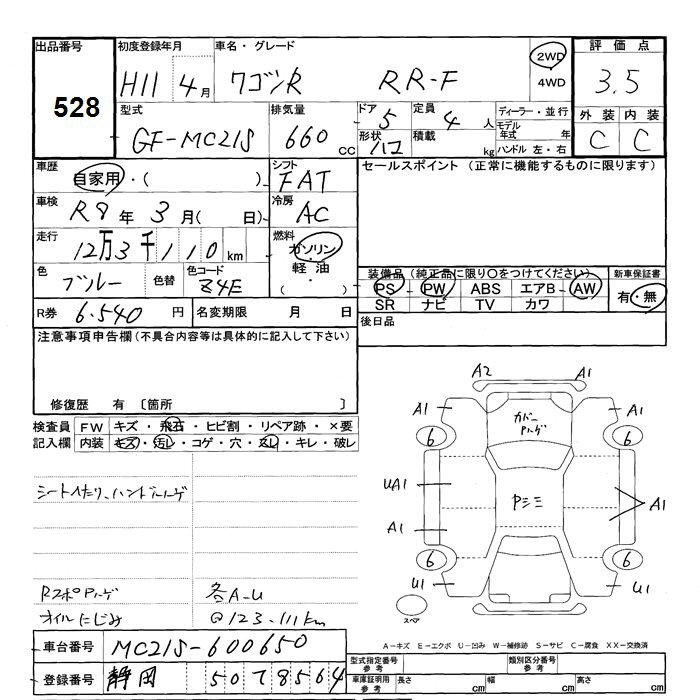 出品番号 初度登録年月 車名・グレード 評価点
528 H11 4月 ワゴンR RR-F 2WD 4WD 3.5
型式 排気量 ドア 定員 ディーラー・並行 外装 内装
GF-MC21S 660 CC 5 4 人 モデル年式 年 C C
形状 ハコ 積載 kg ハンドル 左・右
車歴 自家用・( ) シフト FAT セールスポイント (正常に機能するものに限ります)
車検 R8年 3月( 日) 冷房 AC
走行 12万3千110km 燃料 ガソリン 軽油 ・( )
色 ブルー 色替 色コード Z4E 装備品 (純正品に限り○をつけてください) 新車保証書
PS PW ABS エアB AW 有・無
SR ナビ TV カワ
R券 6.540円 名変期限 月 日 後日品
注意事項申告欄(不具合内容等は具体的に記入して下さい)
修復歴 有 〔箇所 〕
検査員記入欄 FW キズ・飛石・ヒビ割・リペア跡・×要
内装 キズ・汚レ・コゲ・穴・スレ・キレ・破レ
シートヘたり、ハンドルハゲ
RスポPハゲ 各A-U
オイルにじみ @123.111km
A2 A1
A1 A1
カバーPハゲ
6 6
UA1 Pシミ A1
A1
6 6
U1 U1
スペア
A-キズ E-エクボ U-凹み W-補修跡 S-サビ C-腐食 XX-交換済
車台番号 MC21S-600650
登録番号 静岡 50 7 8564
型式指定番号 参考 類別区分番号 参考
車庫証明用 参考 長さ cm 幅 cm 高さ cm